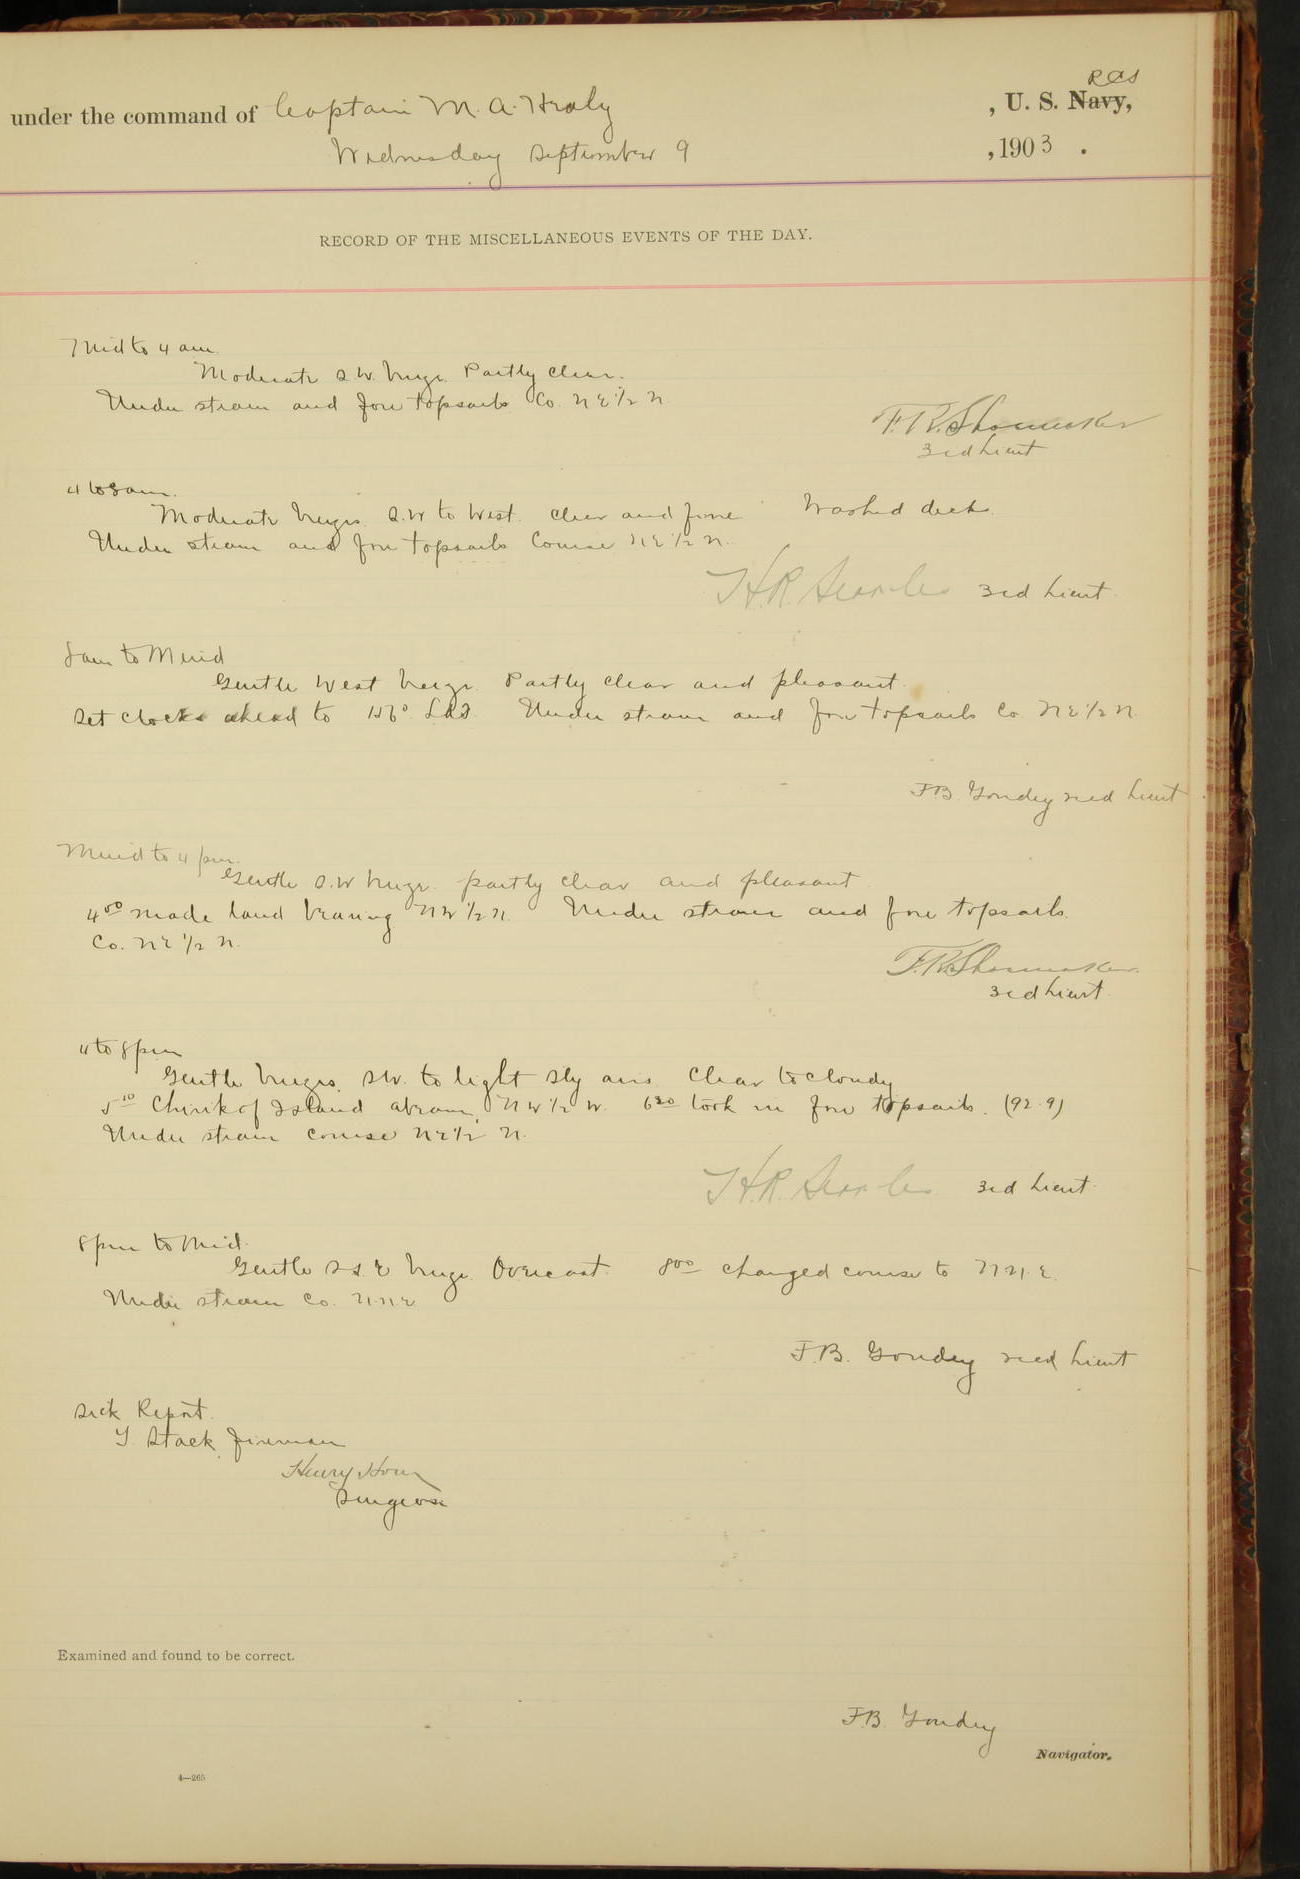 RCS
under the command of Captain M. A. Healy , U. S. Navy,
Wednesday September 9 , 1903 .
RECORD OF THE MISCELLANEOUS EVENTS OF THE DAY.
Mid to 4 am.
Moderate S.W. breeze. Partly clear.
Under steam and fore topsails Co. N E ½ N.
F. R. Shoemaker
3rd Lieut
4 to 8 am.
Moderate breezes S.W to West. Clear and fine Washed decks.
Under steam and fore topsails Course N E ½ N.
H. R. Searles 3rd Lieut.
8 am to Merid
Gentle West breeze. Partly clear and pleasant.
Set clocks ahead to 156° Under steam and fore topsails Co. N E ½ N.
F B Goudey Lieut
Merid to 4 pm.
Gentle S.W breeze. partly clear and pleasant.
4 00 made land bearing N W ½ N. Under steam and fore topsails.
Co. N E ½ N.
F. R. Shoemaker.
3rd Lieut.
4 to 8 pm
Gentle breezes. S W. to light Sly airs. Clear to cloudy
5 10 Chirikof Island abeam, N W ½ W. 6 30 took in fore topsails. (92.9)
Under steam course N E ½ N.
H. R. Searles 3rd Lieut.
8 pm to Mid.
Gentle S S. E breeze. Overcast. 8 00 changed course to N N. E.
Under steam Co. N N E
F. B. Goudey Lieut
Sick Report.
T. Stack, fireman
Henry Horn
Surgeon
Examined and found to be correct.
F. B. Goudey
Navigator.
4—265